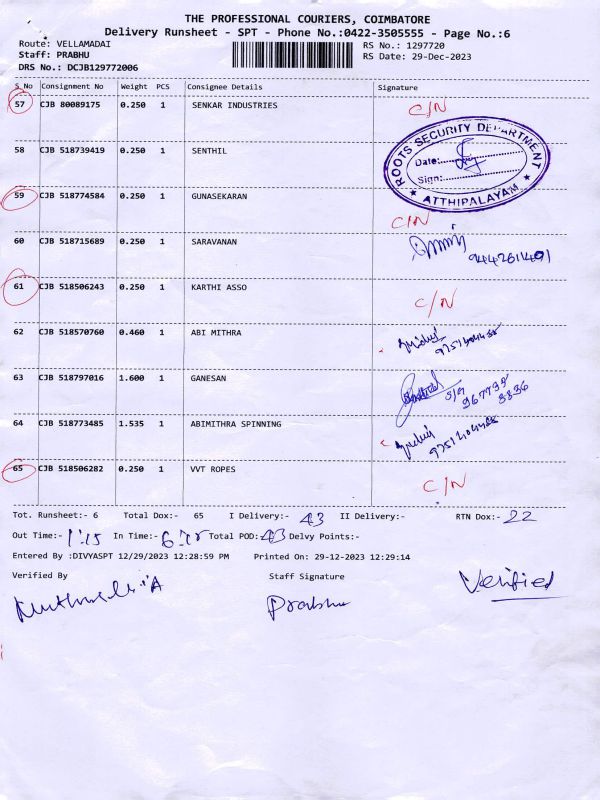 THE PROFESSIONAL COURIERS, COIMBATORE
Delivery Runsheet - SPT - Phone No.:0422-3505555 - Page No.:6
Route: VELLAMADAI
RS No.: 1297720
Staff: PRABHU
RS Date: 29-Dec-2023
DRS No.: DCJB129772006
S.No Consignment No Weight PCS Consignee Details Signature
57 CJB 80089175 0.250 1 SENKAR INDUSTRIES C/N
58 CJB 518739419 0.250 1 SENTHIL
ROOTS SECURITY DEPARTMENT
Date:
Sign:
ATTHIPALAYAM
59 CJB 518774584 0.250 1 GUNASEKARAN C/N
60 CJB 518715689 0.250 1 SARAVANAN 9442611491
61 CJB 518506243 0.250 1 KARTHI ASSO C/N
62 CJB 518570760 0.460 1 ABI MITHRA
63 CJB 518797016 1.600 1 GANESAN
64 CJB 518773485 1.535 1 ABIMITHRA SPINNING
65 CJB 518506282 0.250 1 VVT ROPES C/N
Tot. Runsheet:- 6 Total Dox:- 65 I Delivery:- 43 II Delivery:- RTN Dox:- 22
Out Time:- 1:15 In Time:- Total POD: 43 Delvy Points:-
Entered By :DIVYASPT 12/29/2023 12:28:59 PM Printed On: 29-12-2023 12:29:14
Verified By Staff Signature Verified
Prabhu